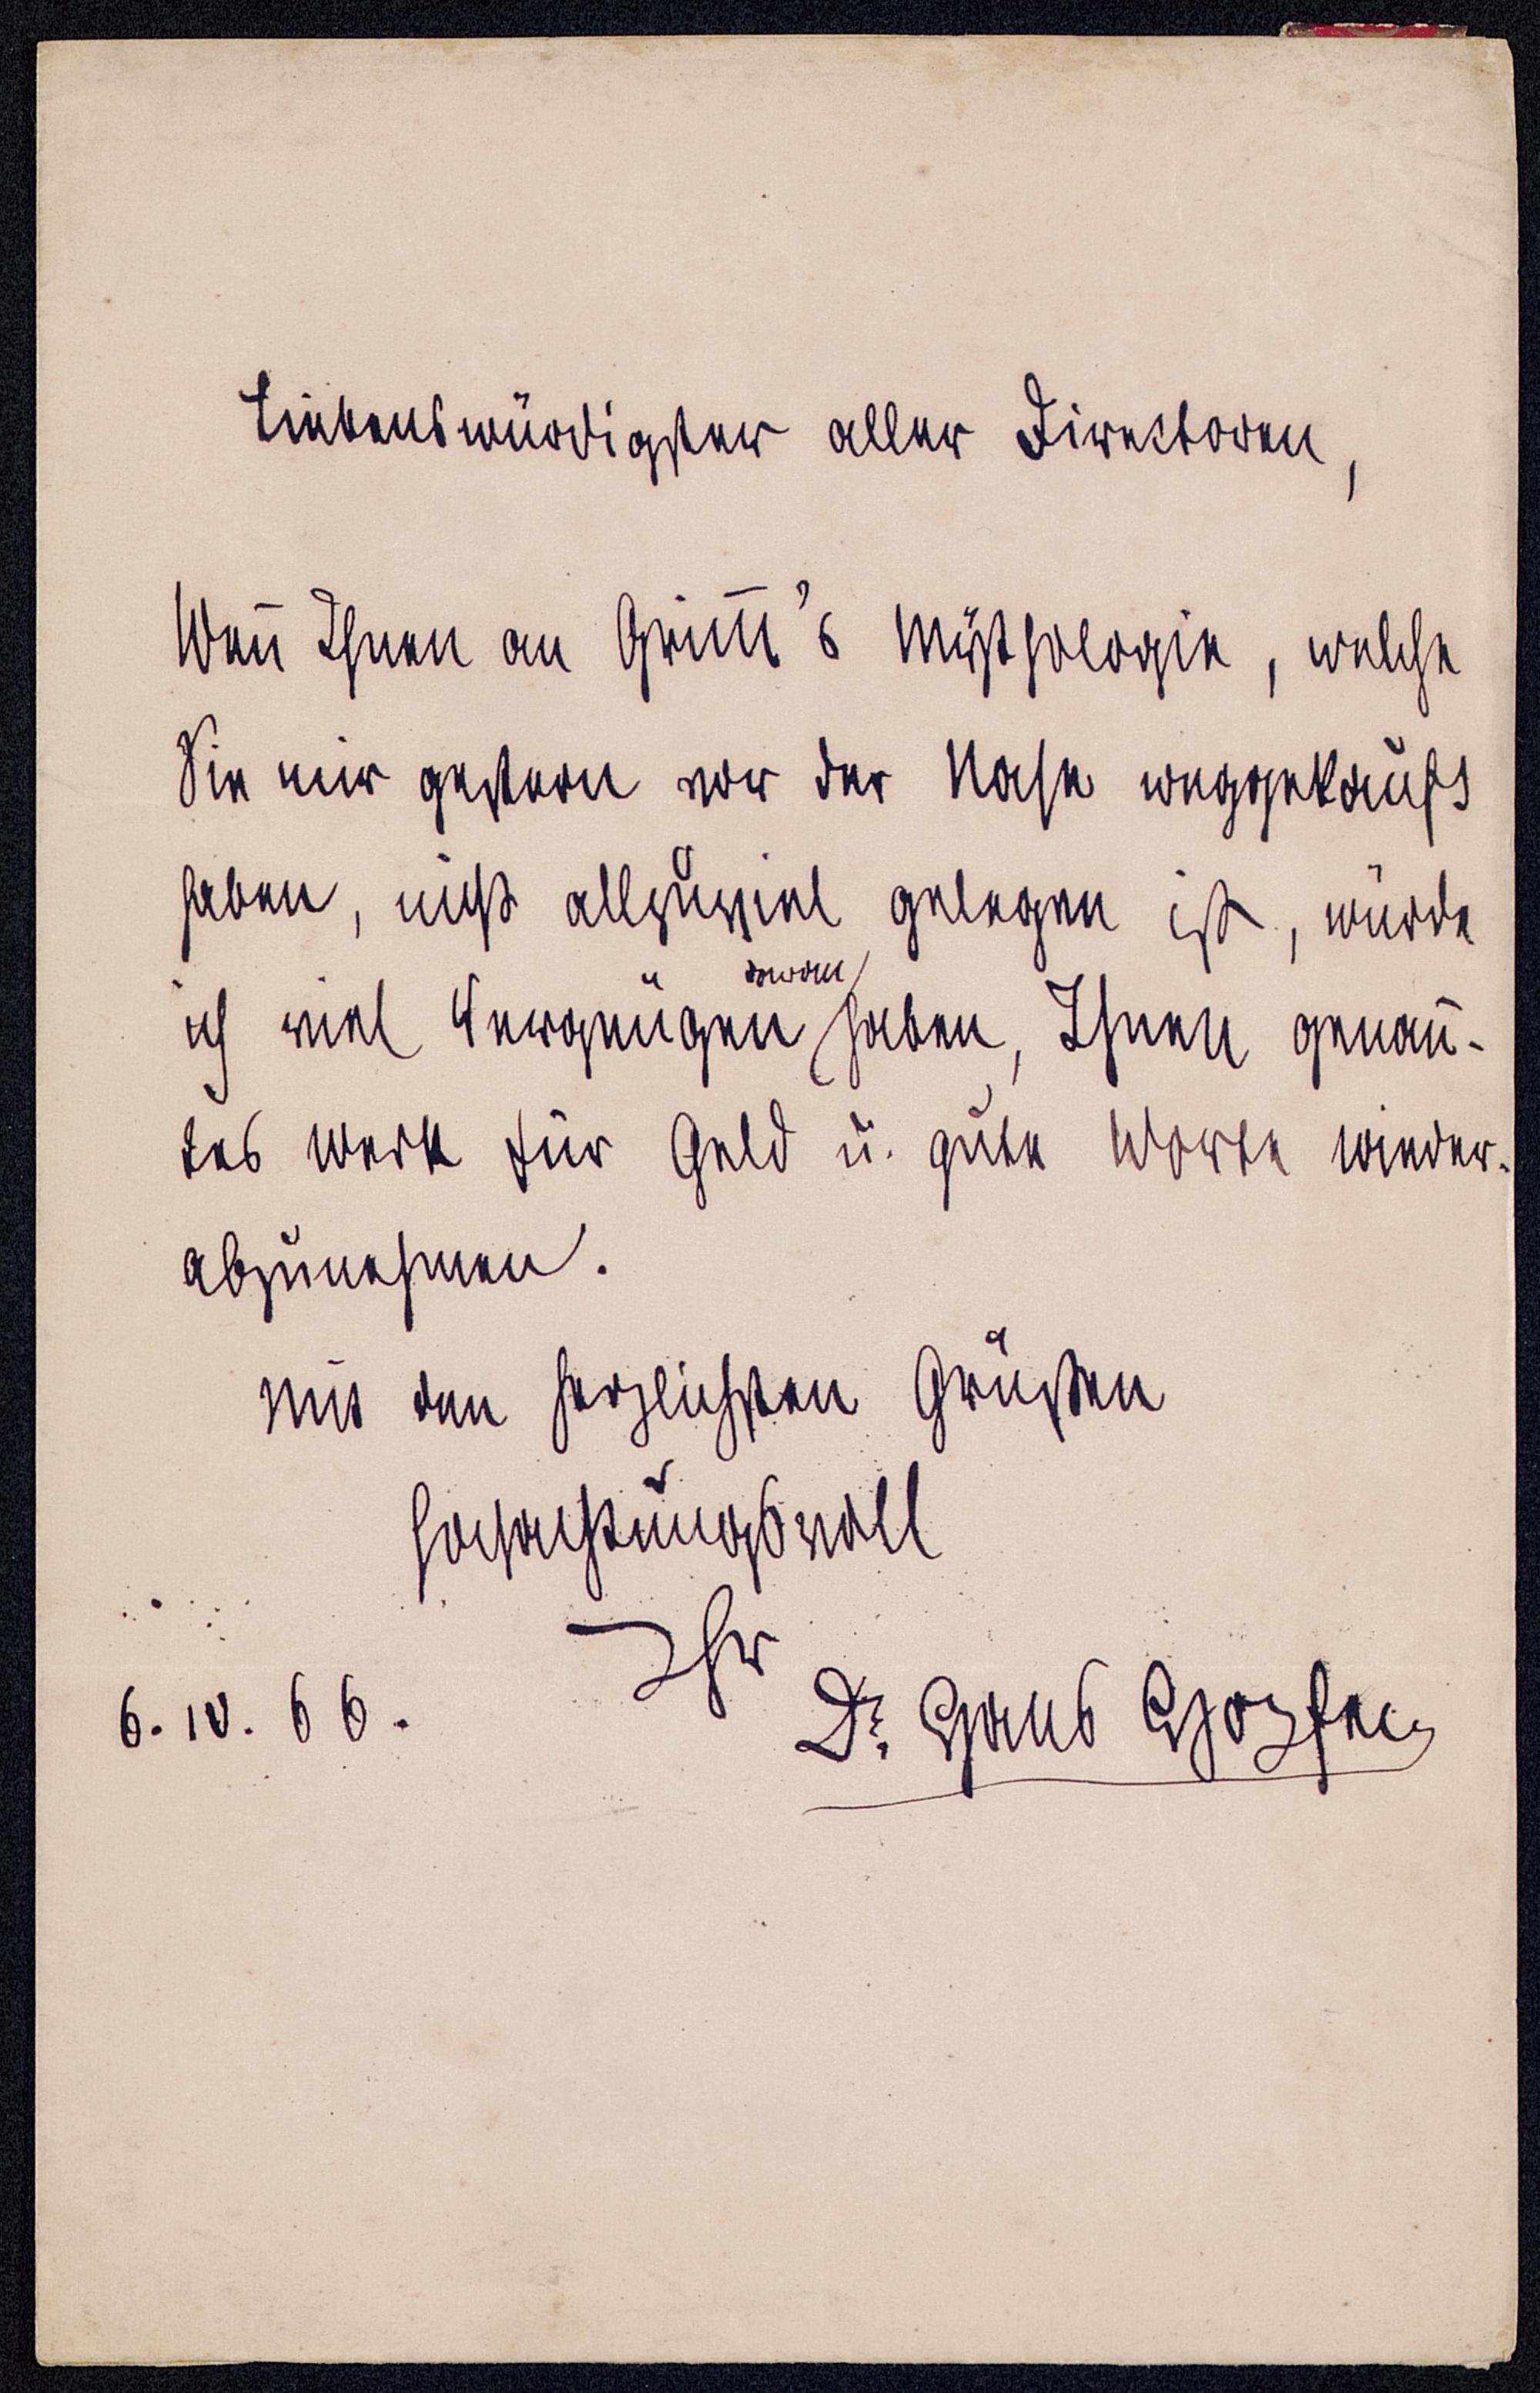 Liebenswürdigster aller Directoren,
Wen̄ Ihnen an Grim̄'s Mythologie, welche
Sie mir gestern vor der Nase weggekauft
haben, nicht allzuviel gelegen ist, würde
ich viel Vergnügen daran haben, Ihnen genan̄-
tes Werk für Geld u. gute Worte wieder-
abzunehmen.
Mit den herzlichsten Grüßen
hochachtungsvoll
Ihr
6. IV. 66. Dr. Hans Hopfen